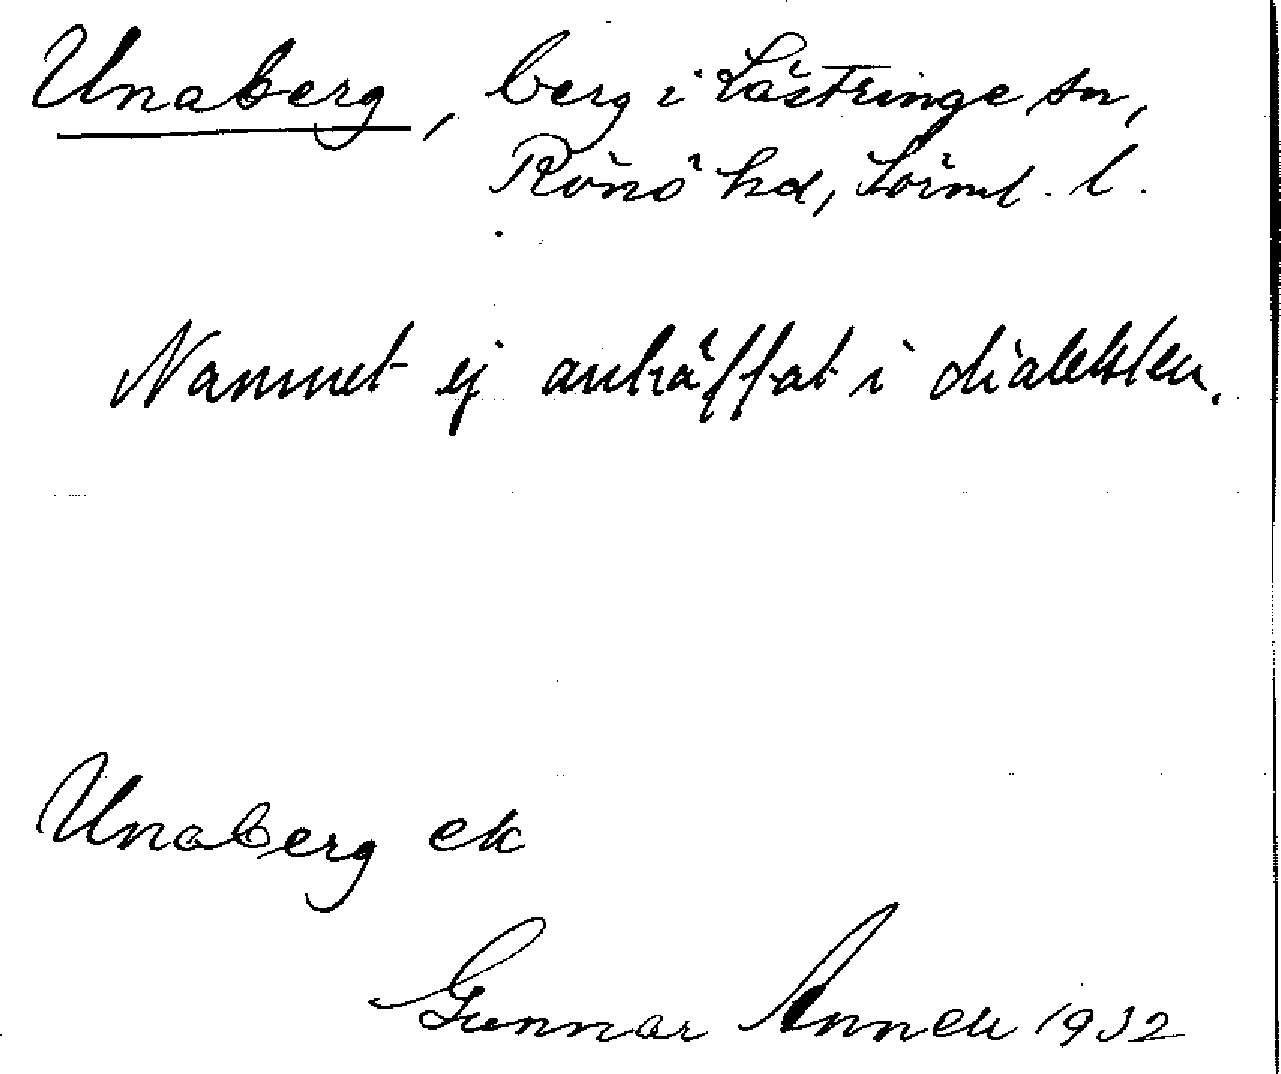 Unaberg, berg i Lästringe sn,
Rönö hd, Sörml. l.
Namnet ej anträffat i dialekten.
Unaberg ek
Gunnar Annell 1932